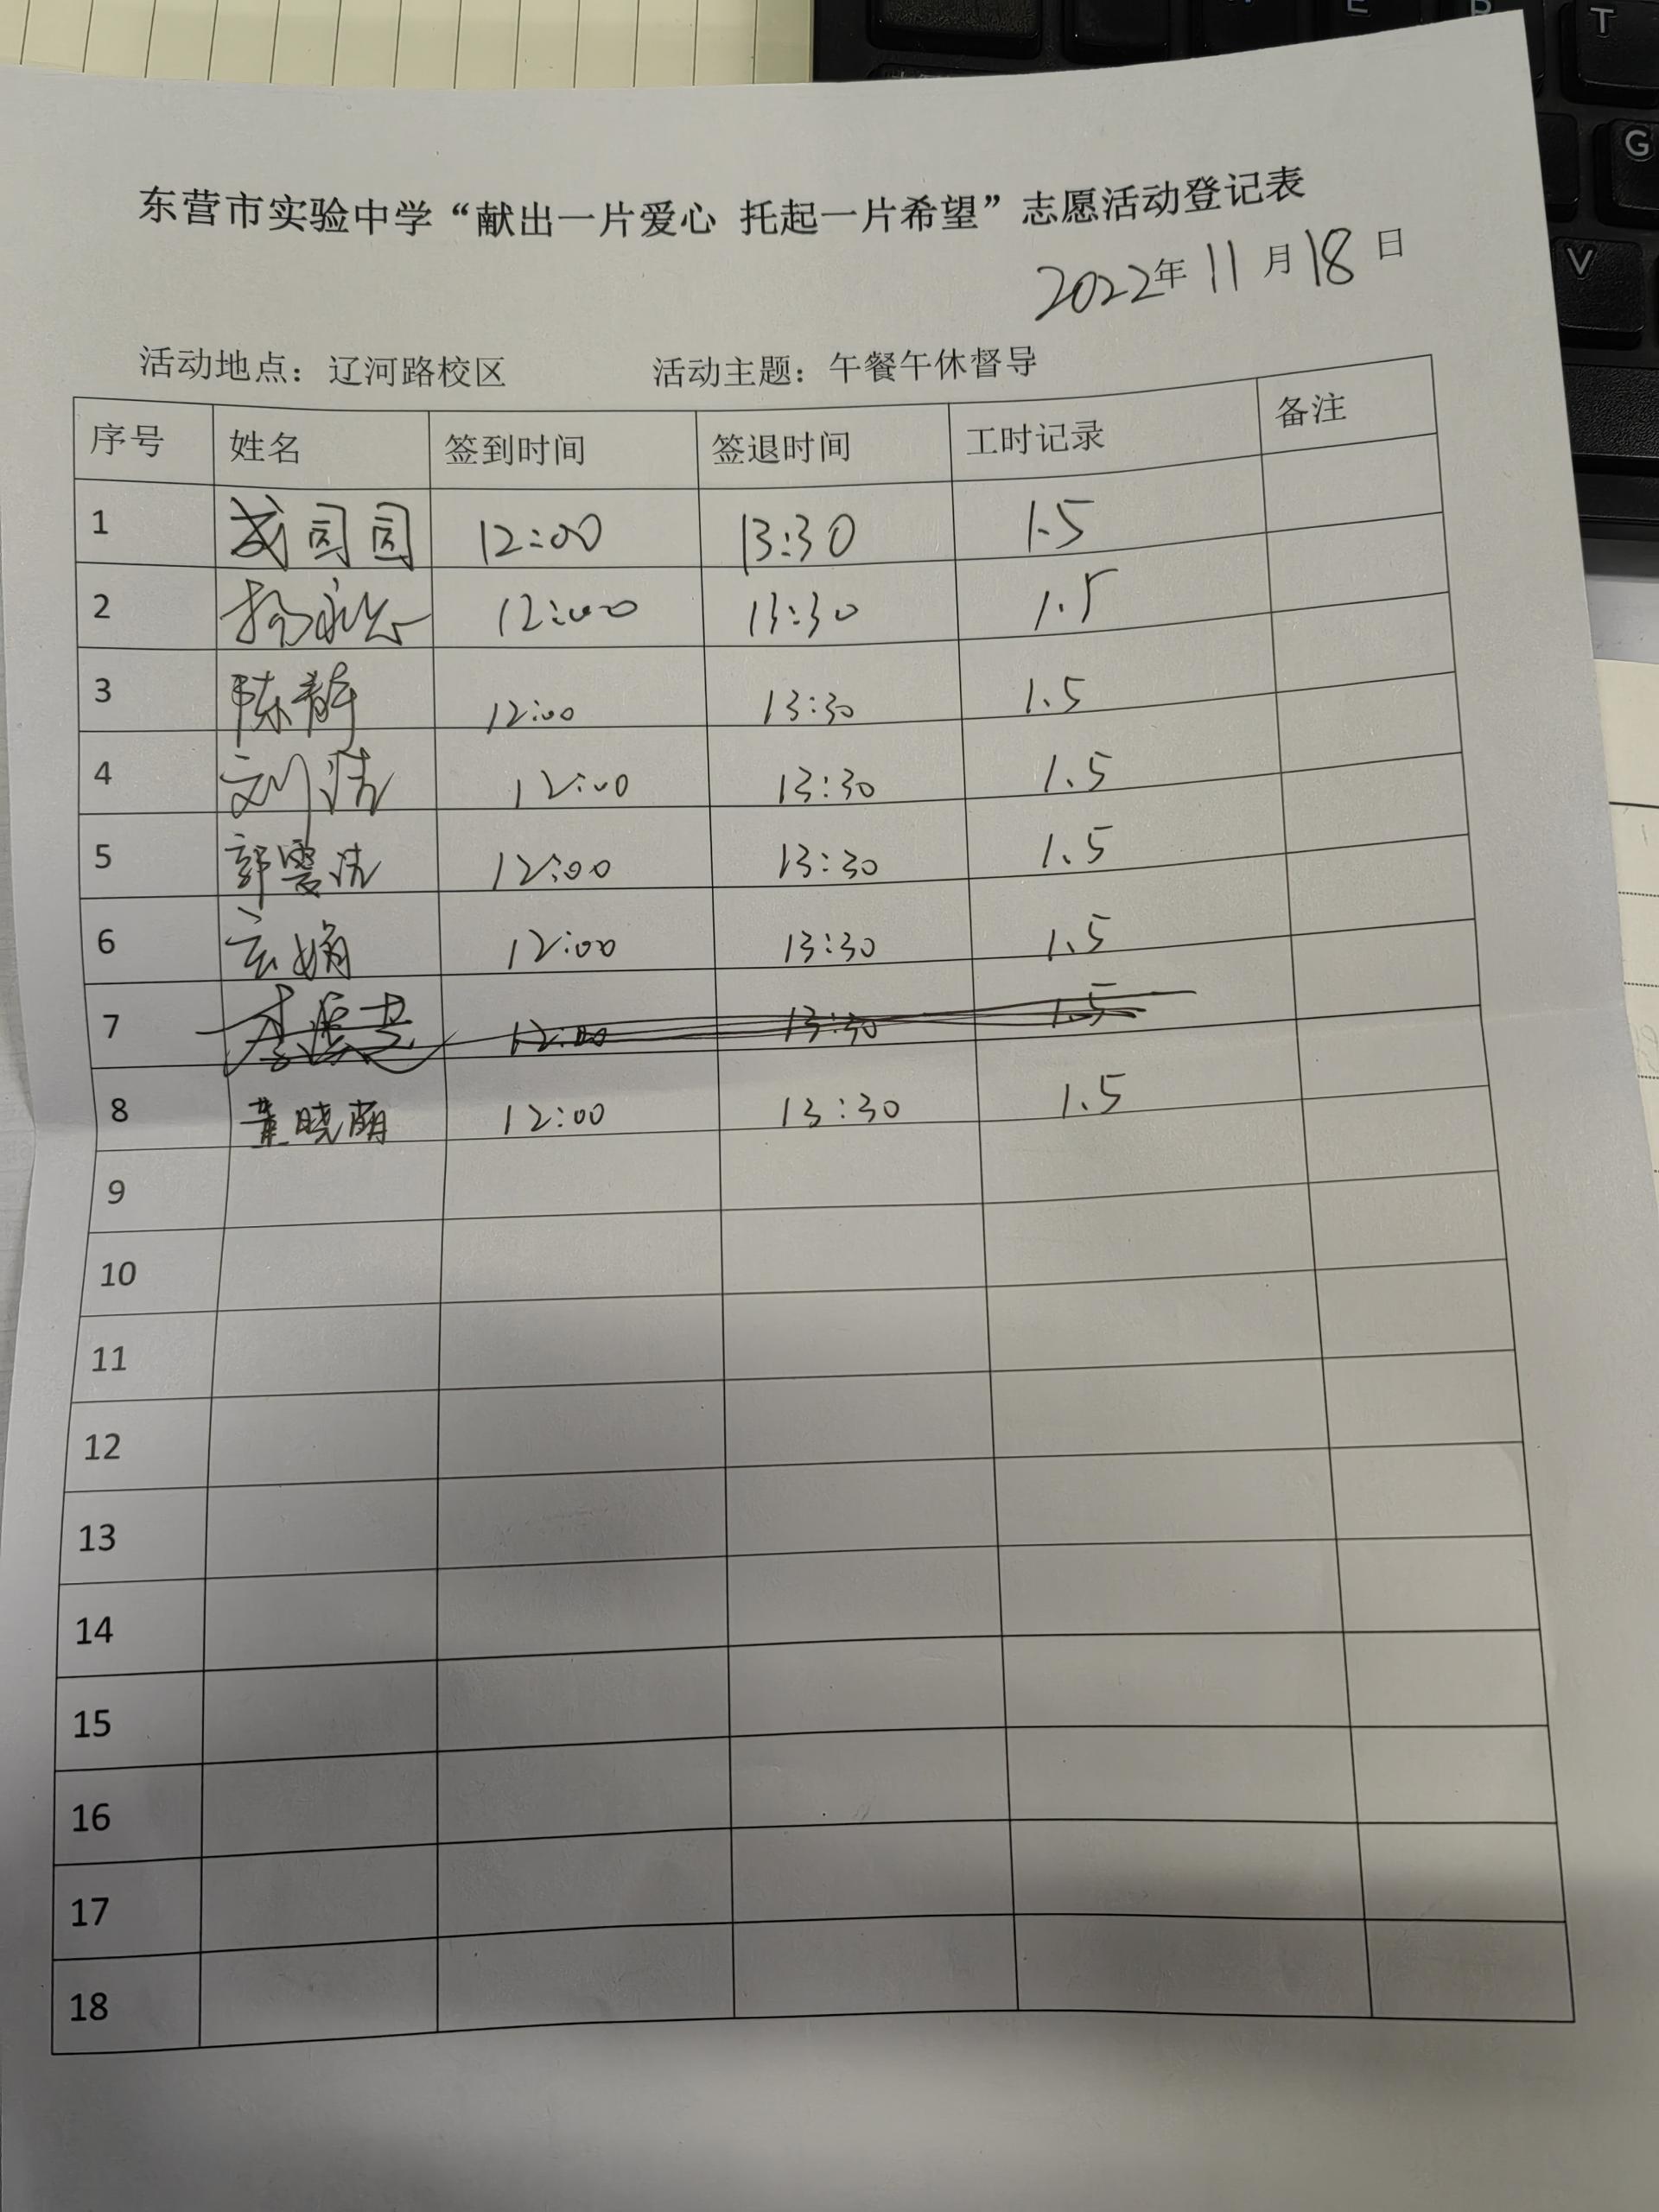 东营市实验中学“献出一片爱心 托起一片希望”志愿活动登记表
2022年11月18日
活动地点：辽河路校区 活动主题：午餐午休督导
序号 姓名 签到时间 签退时间 工时记录 备注
1 12:00 13:30 1.5
2 12:00 13:30 1.5
3 陈静 12:00 13:30 1.5
4 刘洁 12:00 13:30 1.5
5 郭雯洁 12:00 13:30 1.5
6 12:00 13:30 1.5
7 12:00 13:30 1.5
8 董晓萌 12:00 13:30 1.5
9
10
11
12
13
14
15
16
17
18
E R T
G
V